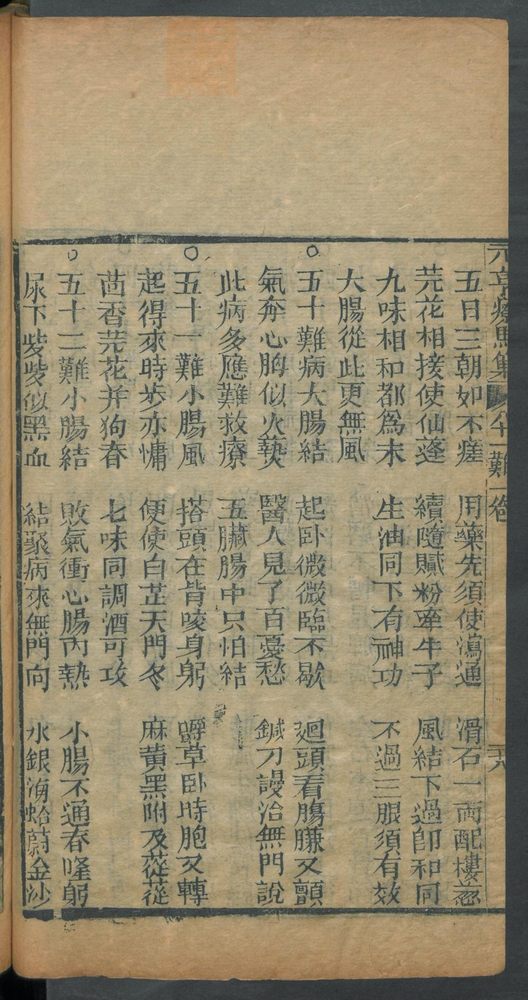 元亨療馬集 八十一難一卷
五日三朝如不瘥 用藥先須使瀉通 滑石一兩配樓葱
芫花相接使仙蓬 續隨膩粉牽牛子 風結下過卽和同
九味相和都爲末 生油同下有神功 不過三服須有效
大腸從此更無風
五十難病大腸結 起卧微微臨不歇 迴頭看膓臁又顫
氣奔心胸似火爇 醫人見了百憂愁 鍼刀謾治無門說
此病多應難救療 五臟腸中只怕結
五十一難小腸風 搭頭在背唆身躬 嚼草卧時胞又轉
起得來時步亦慵 便使白芷天門冬 麻黄黑附及蓯蓯
茴香芫花幷狗脊 七味同調酒可攻
五十二難小腸結 敗氣衝心腸內熱 小腸不通脊隆躬
尿下点点似黑血 結聚病來無門向 水銀海蛤蔚金沙